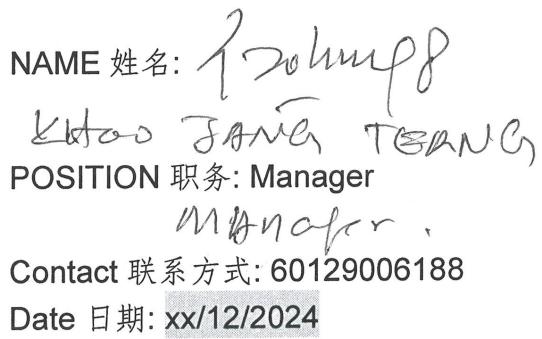 NAME 姓名:
KHOO JANG TERNG
POSITION 职务: Manager
Manager.
Contact 联系方式: 60129006188
Date 日期: xx/12/2024